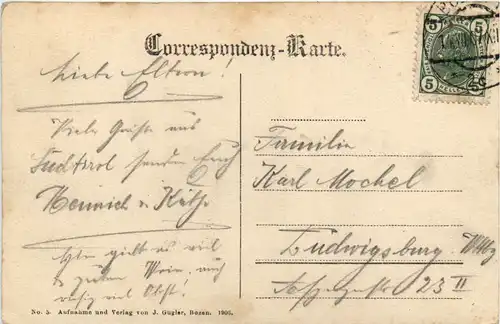 Correspondenz-Karte.
Liebe Eltern!
Viele Grüße aus
Südtirol senden Euch
Heinrich u. Käthe
Hier gibt es viel
guten Wein, auch
viel Obst!
Familie
Karl Mockel
Ludwigsburg Wttbg
23 II
5 5
5 5
No. 5. Aufnahme und Verlag von J. Gugler, Bozen. 1906.